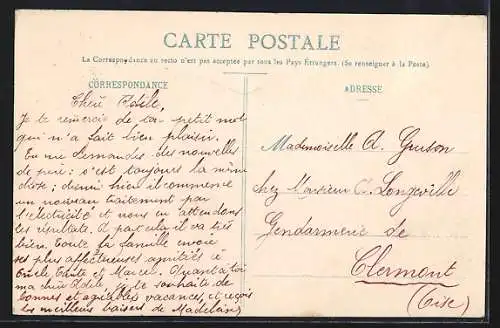 CARTE POSTALE
La Correspondance au recto n'est pas acceptée par tous les Pays Étrangers. (Se renseigner à la Poste).
CORRESPONDANCE
ADRESSE
Chère Odile,
Je te remercie de ton petit mot
qui m'a fait bien plaisir.
Tu me demandes des nouvelles
de père : c'est toujours la même
chose ; demi hier il commence
un nouveau traitement par
l'électricité et nous en attendons
les résultats. A part cela il va très
bien. Toute la famille envoie
ses plus affectueuses amitiés à
Oncle, Tante et Marcel. Quant à toi
ma chère Odile, je te souhaite de
bonnes et agréables vacances, et reçois
les meilleurs baisers de Madeleine
Mademoiselle O.
chez Monsieur Longeville
Gendarmerie de
Clermont
(Oise)